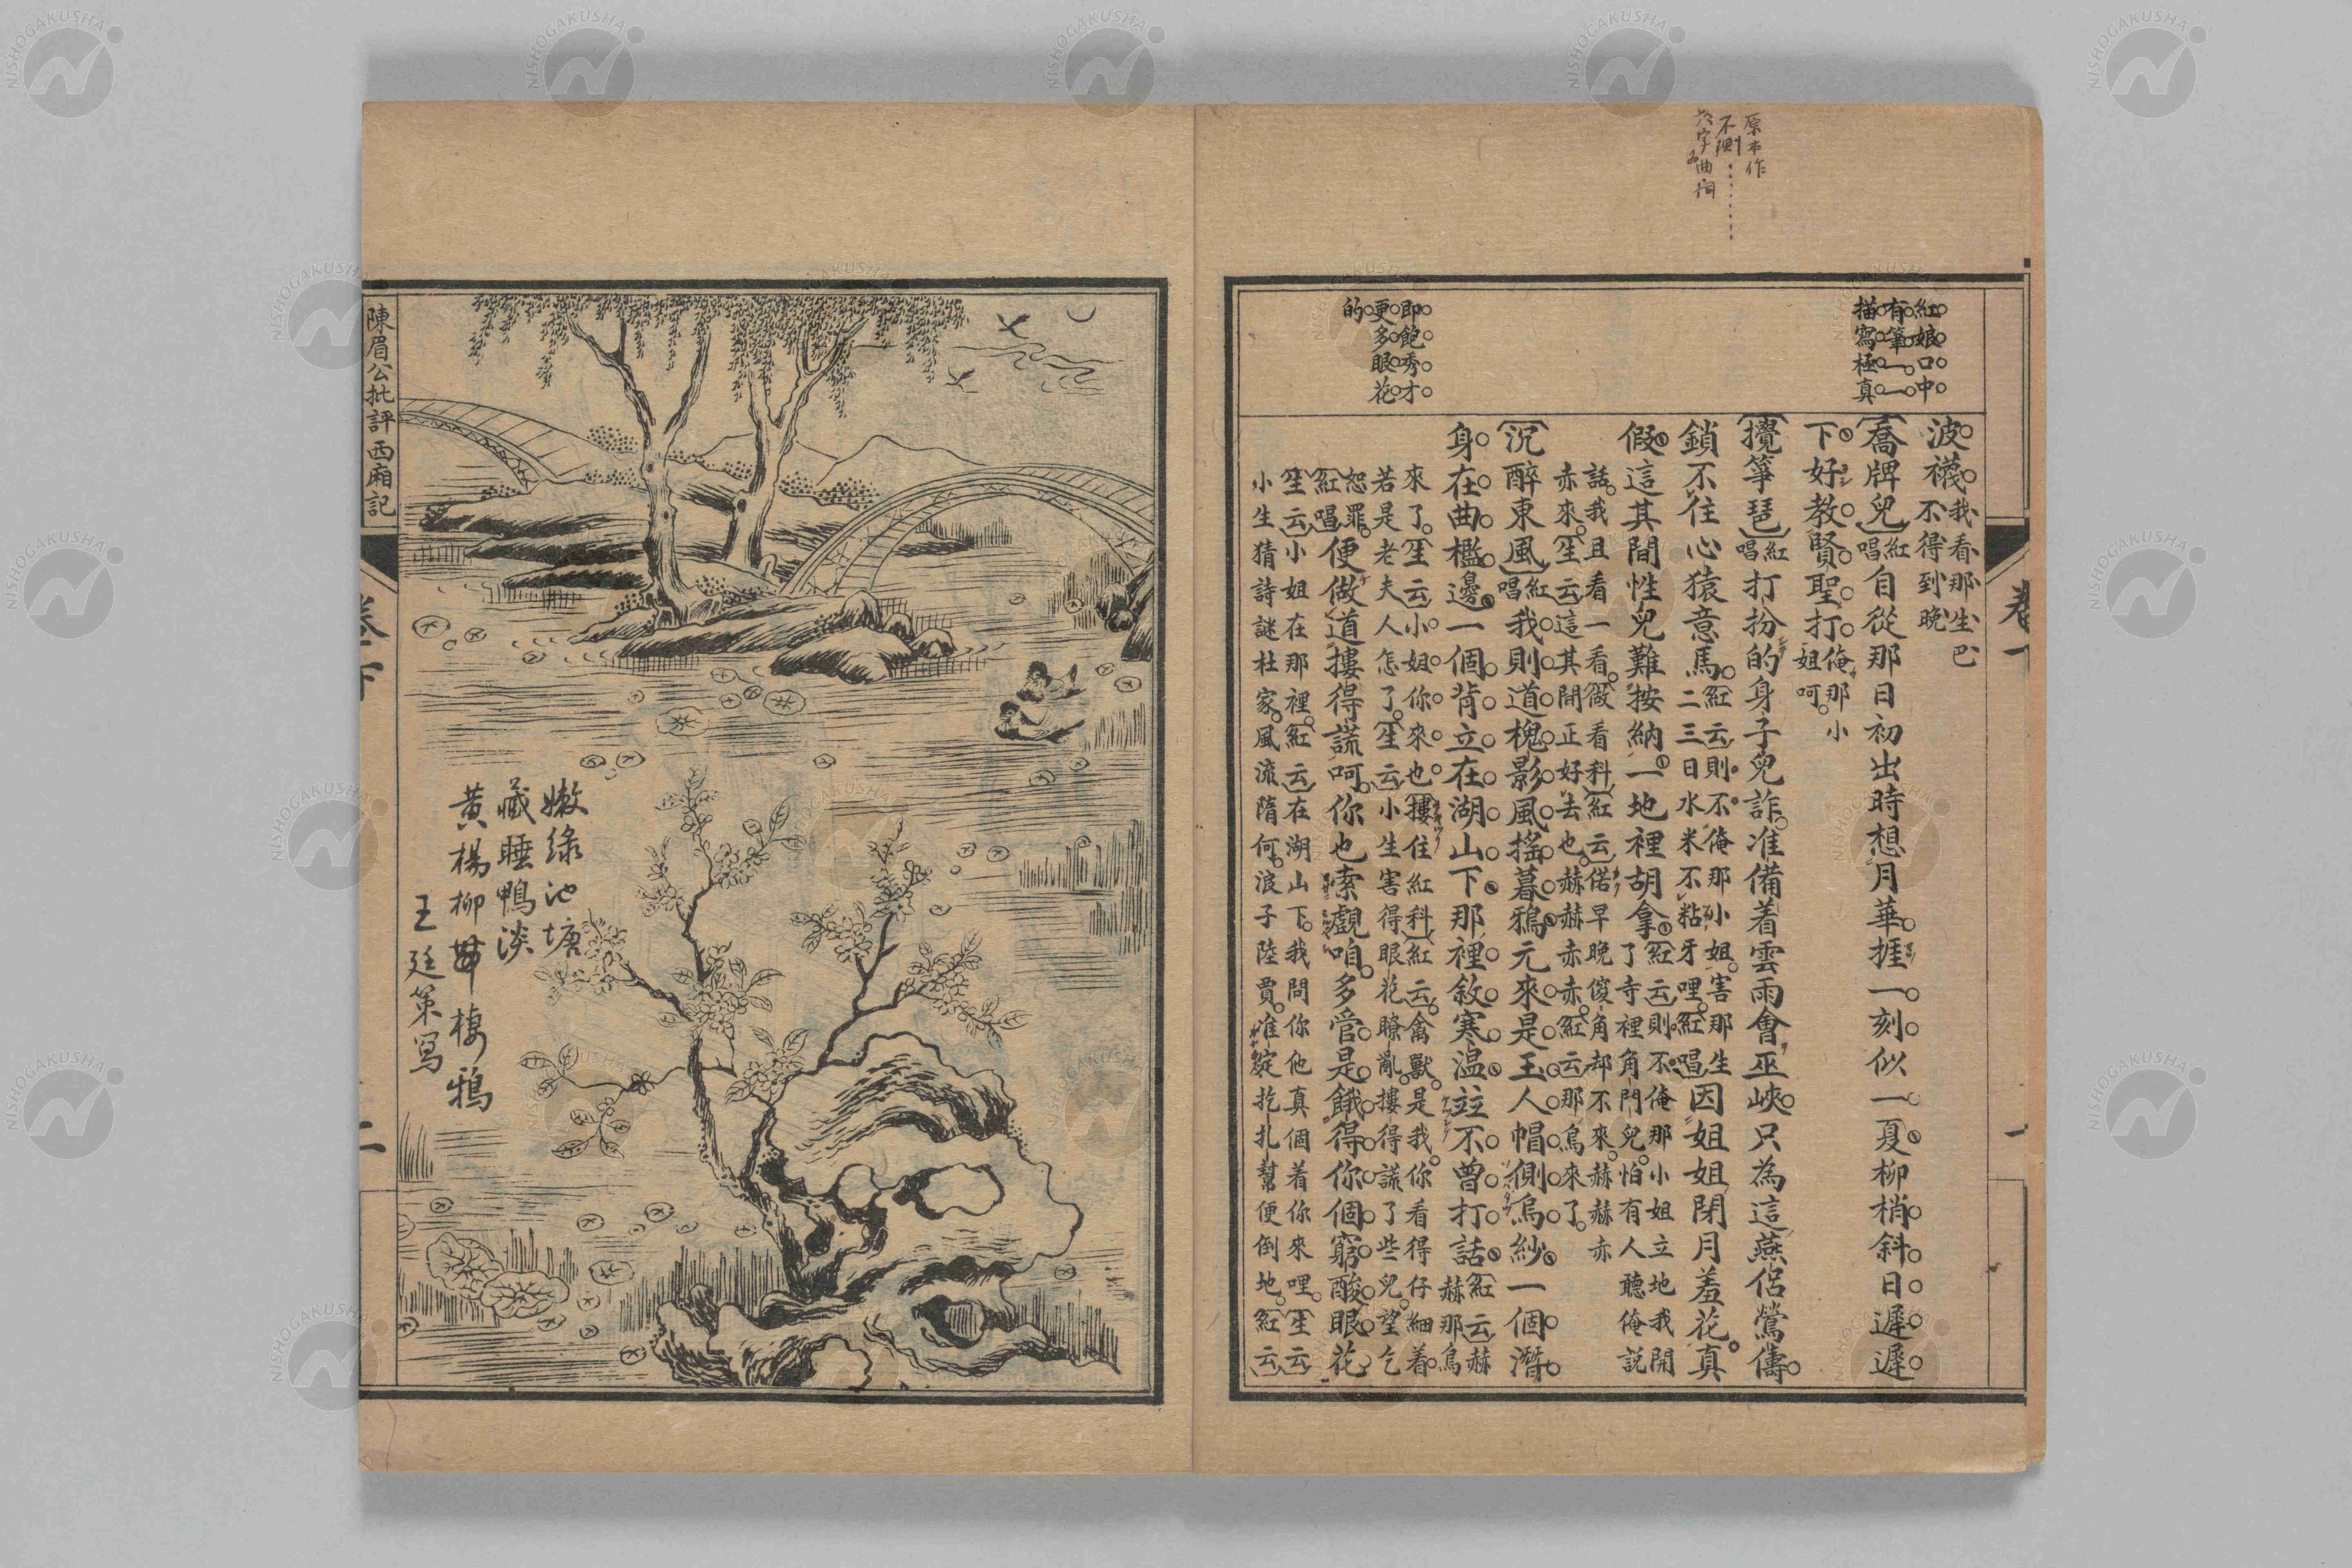 原本作
字曲詞
紅娘口中
有筆一一
描寫極真
即飽秀才
更多眼花
的
卷下
一
波襪我看那生巴不得到晚
喬牌兒紅唱自從那日初出時想月華捱一刻似一夏柳梢斜日遲遲
下好教賢聖打俺那小姐呵
攪箏琶紅唱打扮的身子兒詐准備着雲雨會巫峽只為這燕侶鶯儔
鎖不住心猿意馬紅云則不俺那小姐害那生二三日水米不粘牙哩紅唱因姐姐閉月羞花真
假這其間性兒難按納一地裡胡拿紅云則不俺那小姐立地我開了寺裡角門兒怕有人聽俺說
話我且看一看做看科紅云偌早晚傻角却不來赫赫赤
赤來笙云這其間正好去也赫赫赤赤紅云那鳥來了
沉醉東風紅唱我則道槐影風搖暮鴉元來是玉人帽側烏紗一個潛
身在曲檻邊一個背立在湖山下那裡敘寒温並不曾打話紅云赫赫那鳥
來了笙云小姐你來也摟住紅科紅云禽獸是我你看得仔細着
若是老夫人怎了笙云小生害得眼花瞭亂摟得謊了些兒望乞
恕罪紅唱便做道摟得謊呵你也索覷咱多管是餓得你個窮酸眼花
笙云小姐在那裡紅云在湖山下我問你他真個着你來哩笙云
小生猜詩謎杜家風流隋何浪子陸賈准綻挖扎幫便倒地紅云
陳眉公批評西廂記
卷下
二
嫩綠池塘
藏睡鴨淡
黃楊柳帶棲鴉
王廷策寫
NISHOGAKUSHA